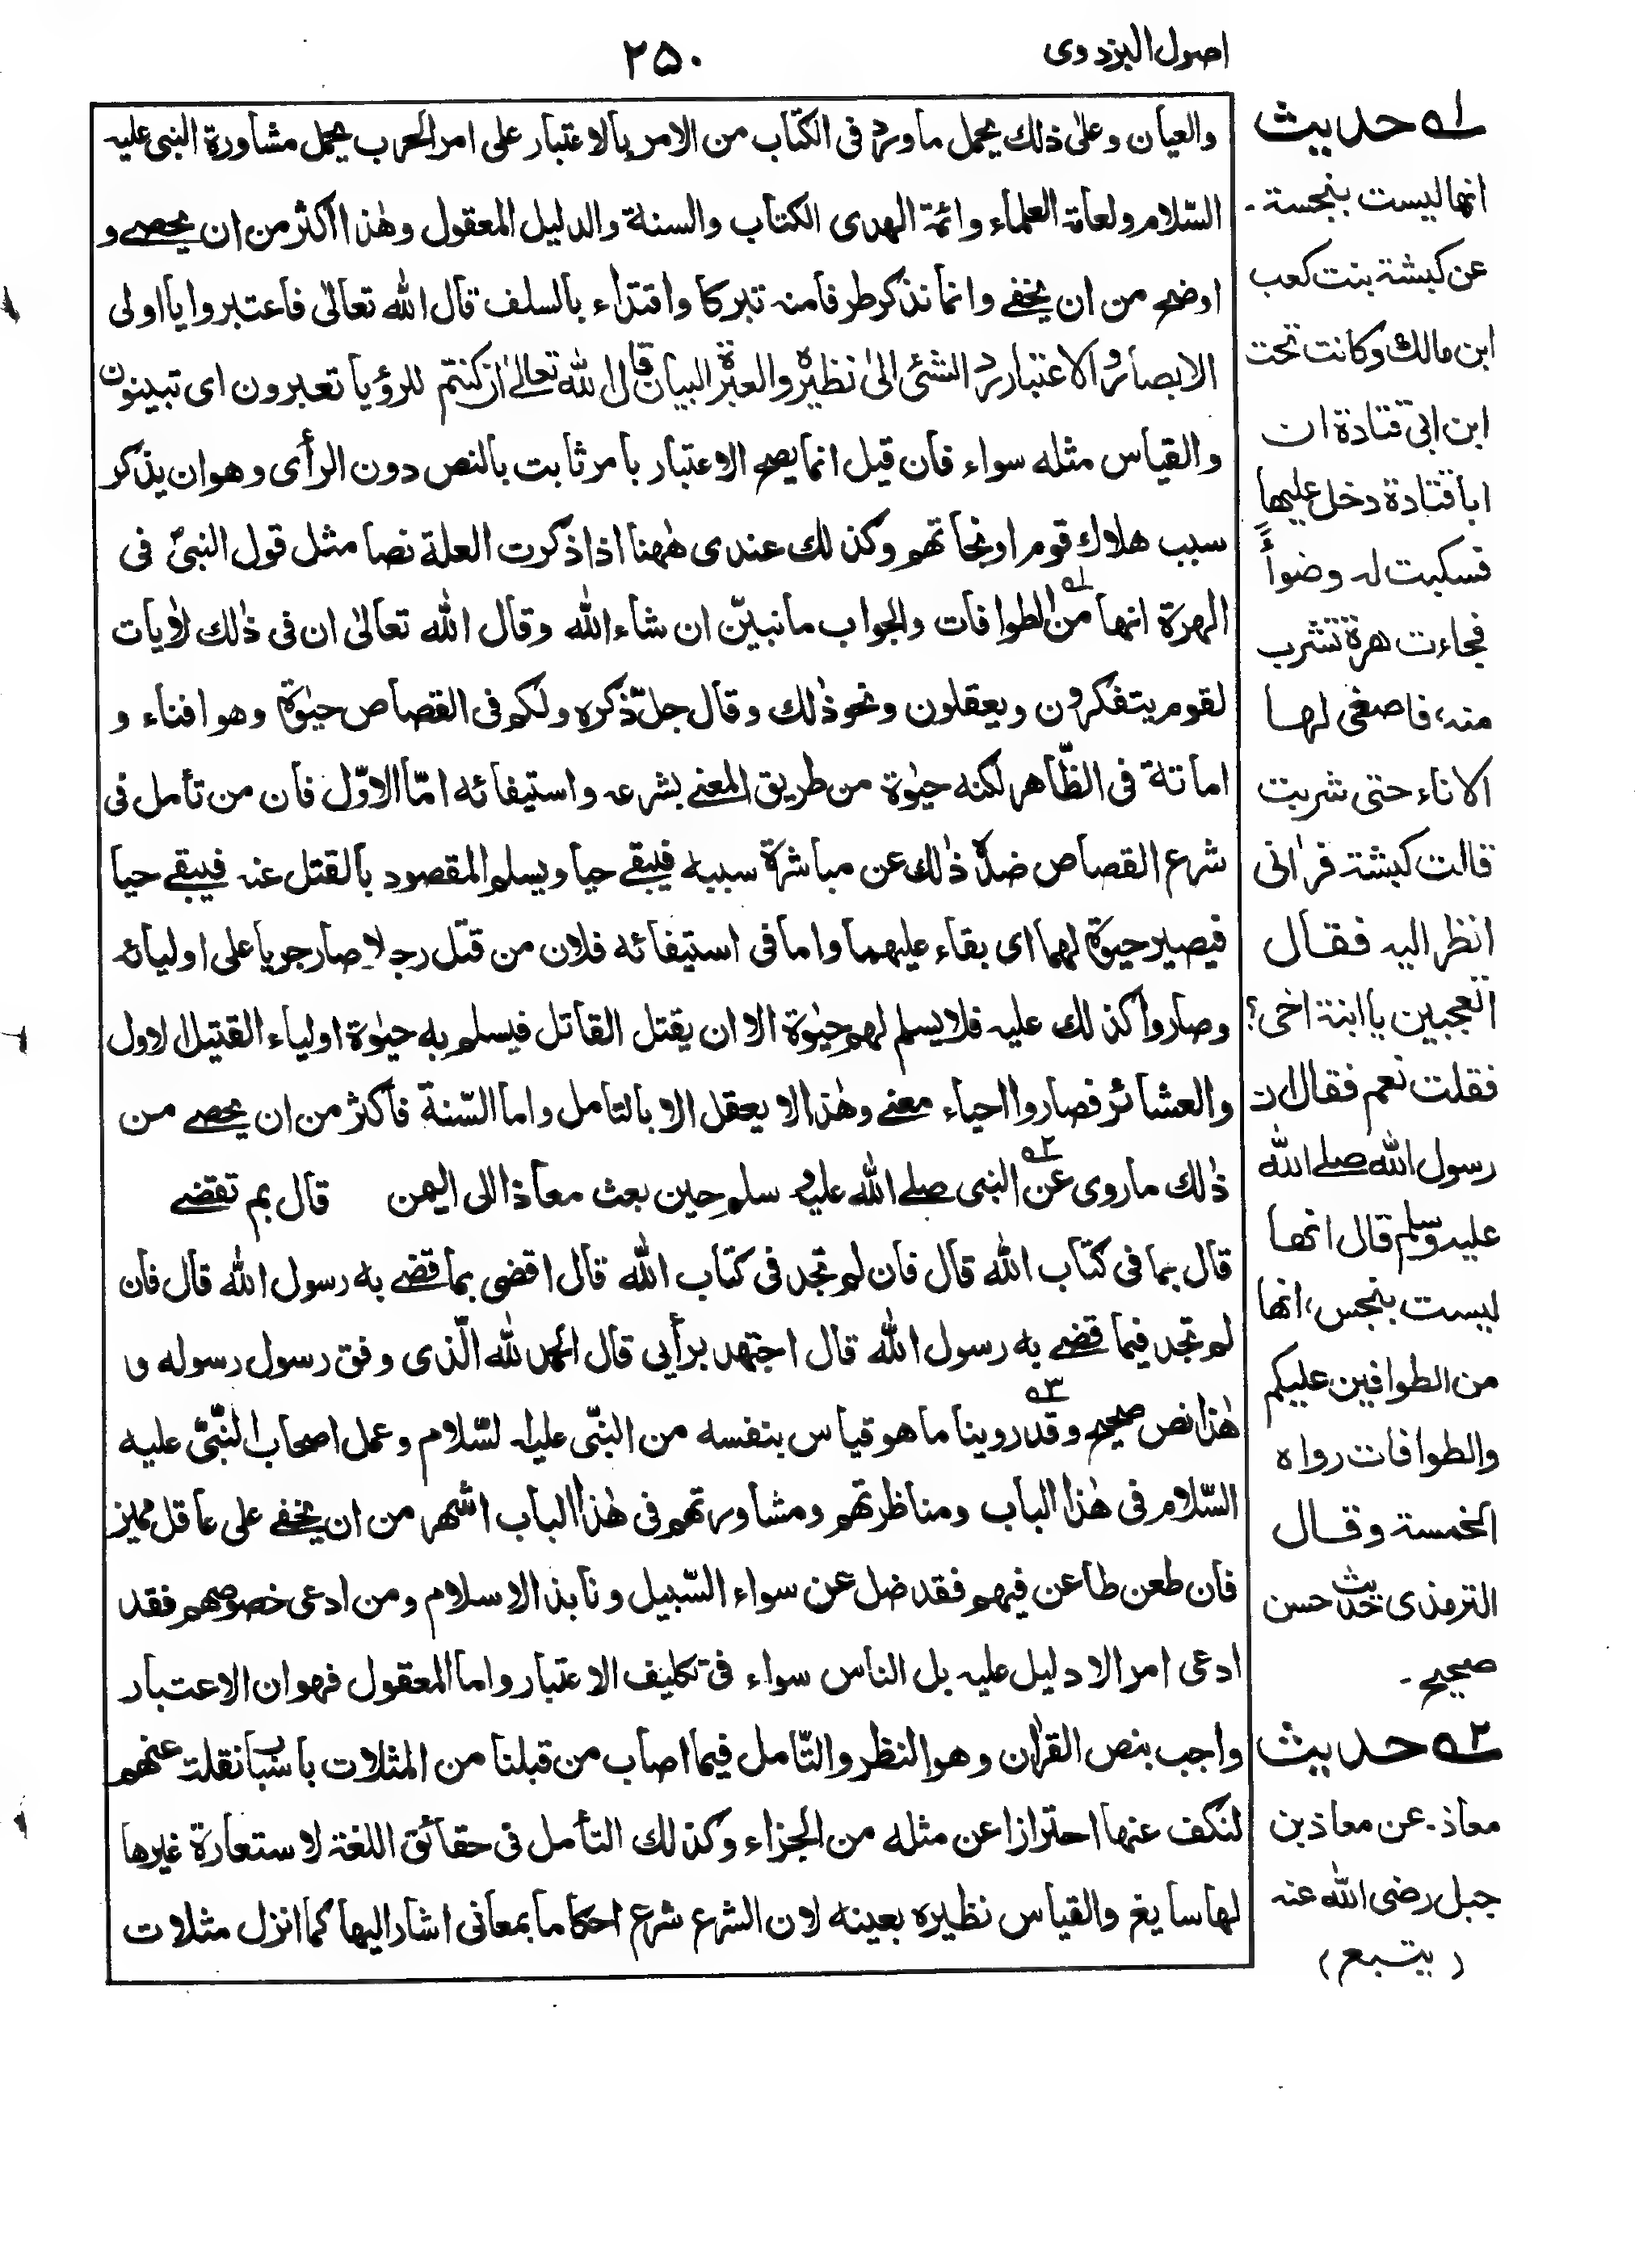 اصول البزدوی
۲۵۰
والعیان وعلیٰ ذلك یحمل ماورد فی الكتاب من الامر بالاعتبار علی امر الحرب یحمل مشاورة النبی علیه
السّلام ولعامة العلماء وائمة الهدی الكتاب والسنة والدلیل المعقول وهٰذا اكثر من ان یحصے و
اوضح من ان یخفے وانما نذكر طرفا منه تبركا واقتداء بالسلف قال الله تعالیٰ فاعتبروا یا اولی
الابصار والاعتبار رد الشئی الیٰ نظیره والعبرة البیان قال الله تعالیٰ ان كنتم للرؤیا تعبرون ای تبینون
والقیاس مثله سواء فان قیل انما یصح الاعتبار بامر ثابت بالنص دون الرأی وهو ان یذكر
سبب هلاك قوم او نجاتهم وكذلك عندی هٰهنا اذا ذكرت العلة نصا مثل قول النبیؐ فی
الهرة انها من الطوافات والجواب ما نبیّن ان شاء الله وقال الله تعالیٰ ان فی ذٰلك لاٰیات
لقوم یتفكرون ویعقلون ونحو ذٰلك وقال جلّ ذكره ولكم فی القصاص حیٰوة وهو افناء و
اماتة فی الظّاهر لكنه حیٰوة من طریق المعنے بشرعه واستیفائه امّا الاوّل فان من تأمل فی
شرع القصاص ضدّه ذٰلك عن مباشرة سببه فیبقے حیا ویسلم المقصود بالقتل عنه فیبقے حیا
فیصیر حیوة لهما ای بقاء علیهما واما فی استیفائه فلان من قتل رجلا صار جریا علی اولیائه
وصاروا كذلك علیه فلا یسلم لهم حیٰوة الا ان یقتل القاتل فیسلم به حیٰوة اولیاء القتیل الاول
والعشائر فصاروا احیاء معنے وهٰذا لا یعقل الا بالتامل واما السّنة فاكثر من ان یحصے من
ذٰلك ماروی عن النبی صلے الله علیه وسلم حین بعث معاذا الی الیمن قال بم تقضے
قال بما فی كتاب الله قال فان لم تجد فی كتاب الله قال اقضی بما قضے به رسول الله قال فان
لم تجد فیما قضے به رسول الله قال اجتهد برأیی قال الحمد لله الّذی وفق رسول رسوله و
هٰذا نص صحیح وقد روینا ما هو قیاس بنفسه من النبّی علیه السّلام وعمل اصحاب النّبیّ علیه
السّلام فی هٰذا الباب ومناظرتهم ومشاورتهم فی هٰذا الباب اشهر من ان یخفے علی عاقل ممیز
فان طعن طاعن فیهم فقد ضل عن سواء السّبیل ونابذ الاسلام ومن ادعی خصوصهم فقد
ادعی امرا لا دلیل علیه بل الناس سواء فی تكلیف الاعتبار واما المعقول فهو ان الاعتبار
واجب بنص القرٰان وهو النظر والتّامل فیما اصاب من قبلنا من المثلات باسباب نقلت عنهم
لنكف عنها احترازا عن مثله من الجزاء وكذلك التأمل فی حقائق اللغة لاستعارة غیرها
لها سایغ والقیاس نظیره بعینه لان الشرع شرع احكاما بمعانی اشار الیها كما انزل مثلات
۱ حدیث
انها لیست بنجسة۔
عن كبشة بنت كعب
ابن مالك وكانت تحت
ابن ابی قتادة ان
ابا قتادة دخل علیها
فسكبت له وضوأً
فجاءت هرة تشرب
منه، فاصغی لها
الاناء حتی شربت
قالت كبشة فراٰنی
انظر الیه فقال
اتعجبین یا ابنة اخی؟
فقلت نعم فقال ان
رسول الله صلے الله
علیه وسلم قال انها
لیست بنجس، انها
من الطوافین علیكم
والطوافات رواه
الخمسة وقال
الترمذی حدیث حسن
صحیح۔
۲ حدیث
معاذ۔ عن معاذ بن
جبل رضی الله عنه
(یتبع)